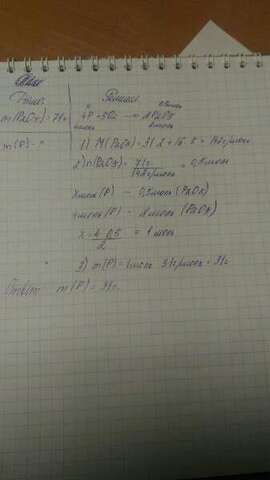 Дано:
Решение
m(P2O5) = 71г
x 0,5моль
4P + 5O2 → 2P2O5
4моль 2моль
m(P) - ?
1) M(P2O5) = 31·2 + 16·5 = 142г/моль
2) n(P2O5) = 71г / 142г/моль = 0,5моль
x моль (P) — 0,5моль (P2O5)
4 моль (P) — 2 моль (P2O5)
x = 4·0,5 / 2 = 1 моль
3) m(P) = 1моль · 31г/моль = 31г
Ответ: m(P) = 31г.